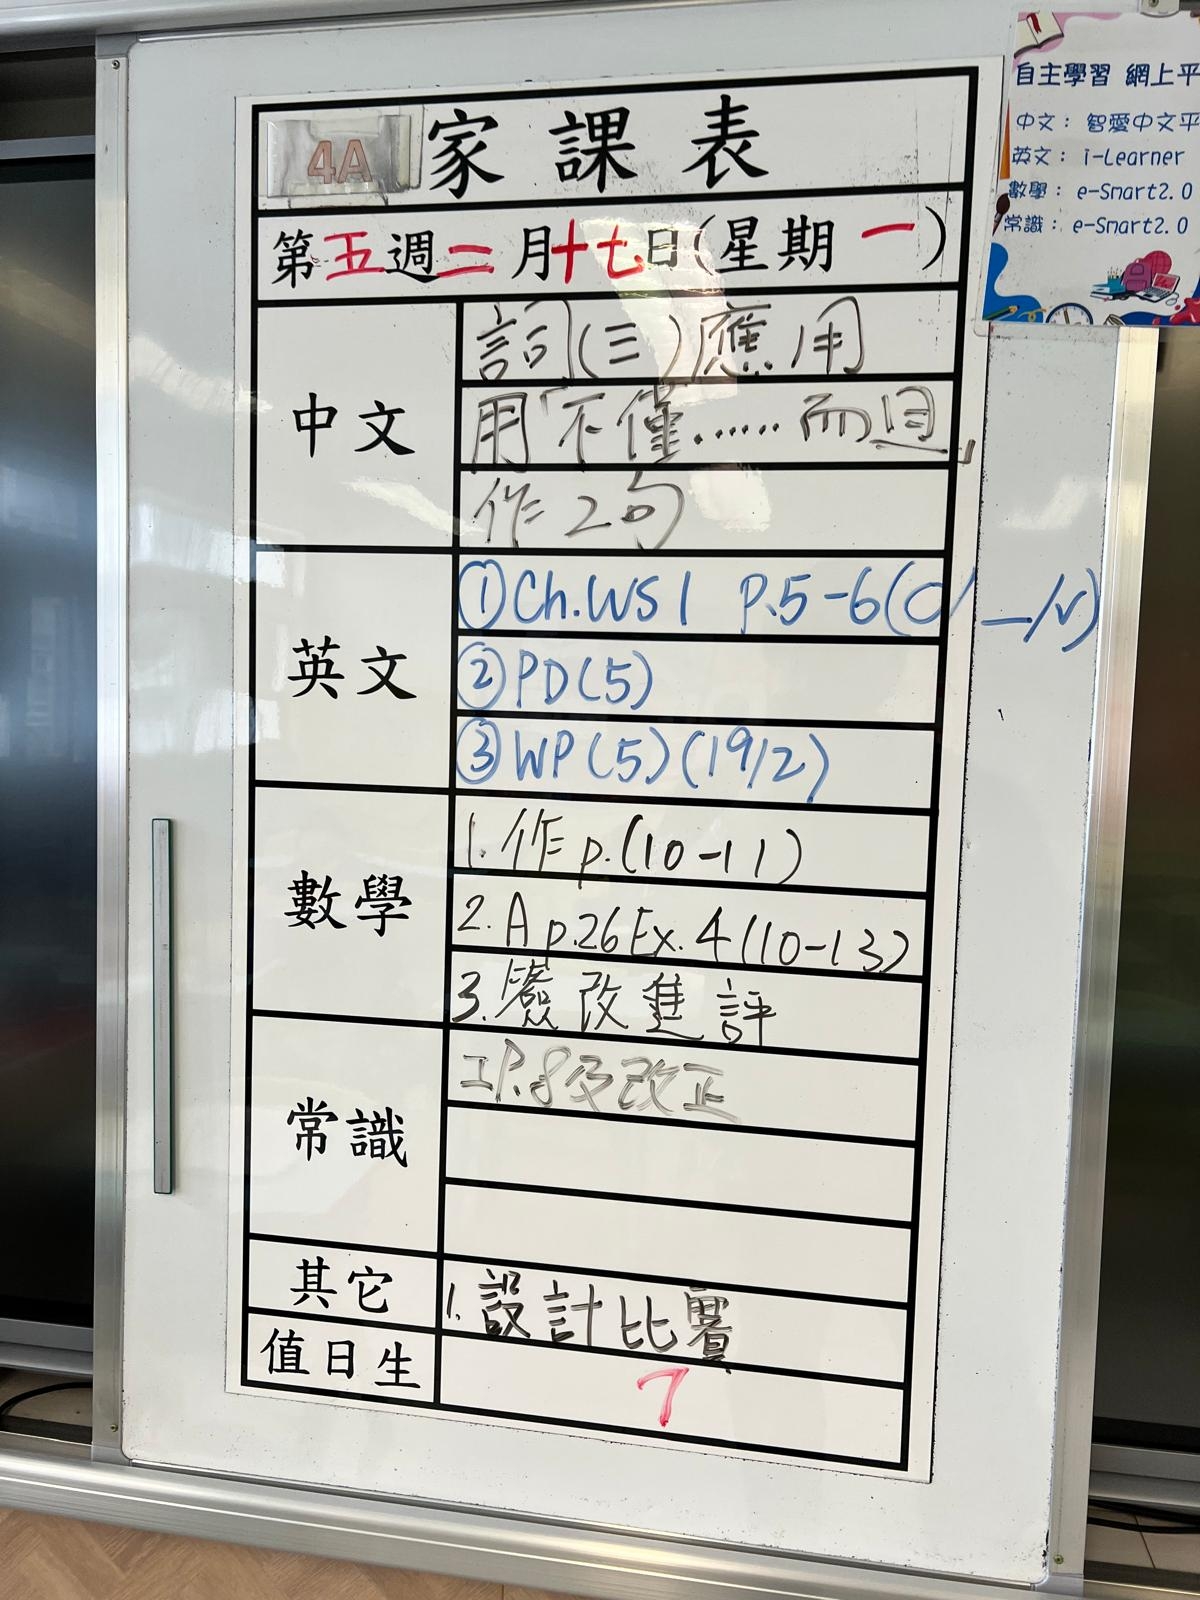 4A 家課表
第五週二月十七日(星期一)
中文
詞(三)應用
用「不僅……而且」
作2句
英文
①Ch.WS1 P.5-6(C/__/V)
②PD(5)
③WP(5)(19/2)
數學
1.作p.(10-11)
2.A p.26Ex.4(10-13)
3.簽改進評
常識
工P.8及改正
其它
1.設計比賽
值日生
7
自主學習 網上平
中文：智愛中文平
英文：i-Learner
數學：e-Smart2.0
常識：e-Smart2.0